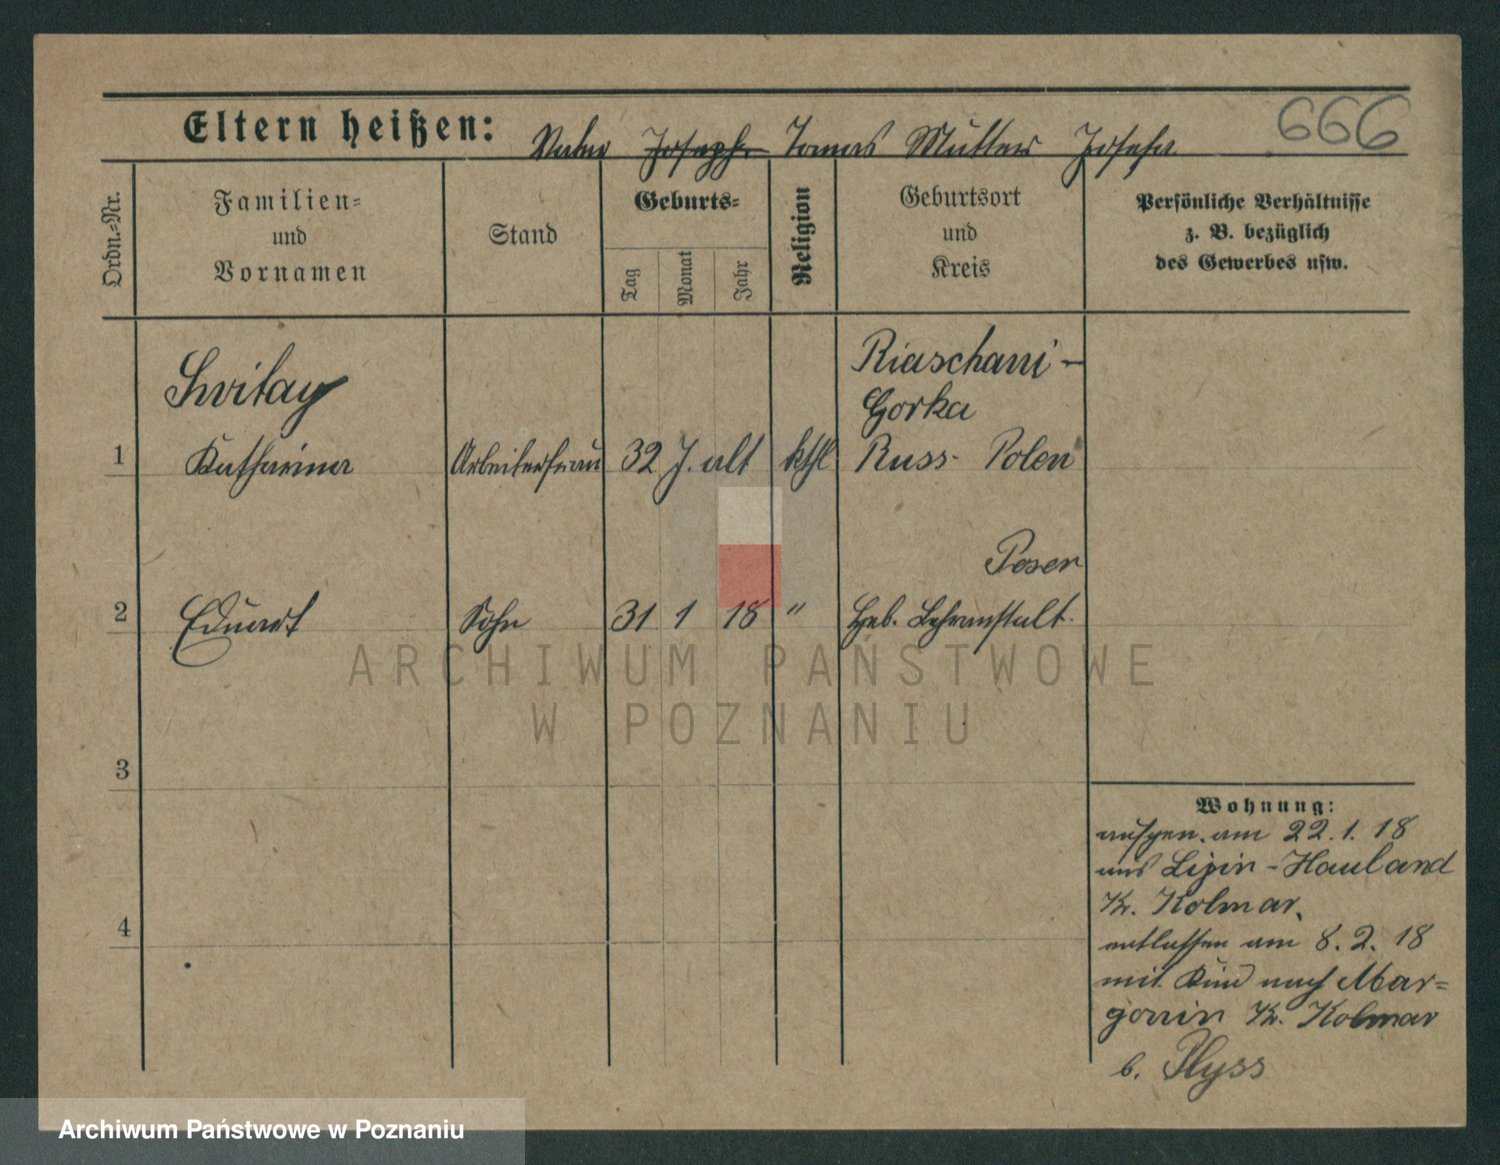 666
Eltern heißen: Vater Joseph Tomas Mutter Josefa
Ordn.-Nr.
Familien-
und
Vornamen
Stand
Geburts-
Tag
Monat
Jahr
Religion
Geburtsort
und
Kreis
Persönliche Verhältnisse
z. B. bezüglich
des Gewerbes usw.
Riaschani-
Gorka
1 Katharina Arbeiterfrau 32 J. alt kthl Russ- Polen
Posen
2 Eduart Sohn 31 1 18 " Heb. Lehranstalt.
ARCHIWUM PAŃSTWOWE
W POZNANIU
3
4
Wohnung:
aufgen. am 22.1.18
aus Lipin-Hauland
Kr. Kolmar.
entlassen am 8.2.18
mit Kind nach Mar-
gonin Kr. Kolmar
b. Plyss
Archiwum Państwowe w Poznaniu